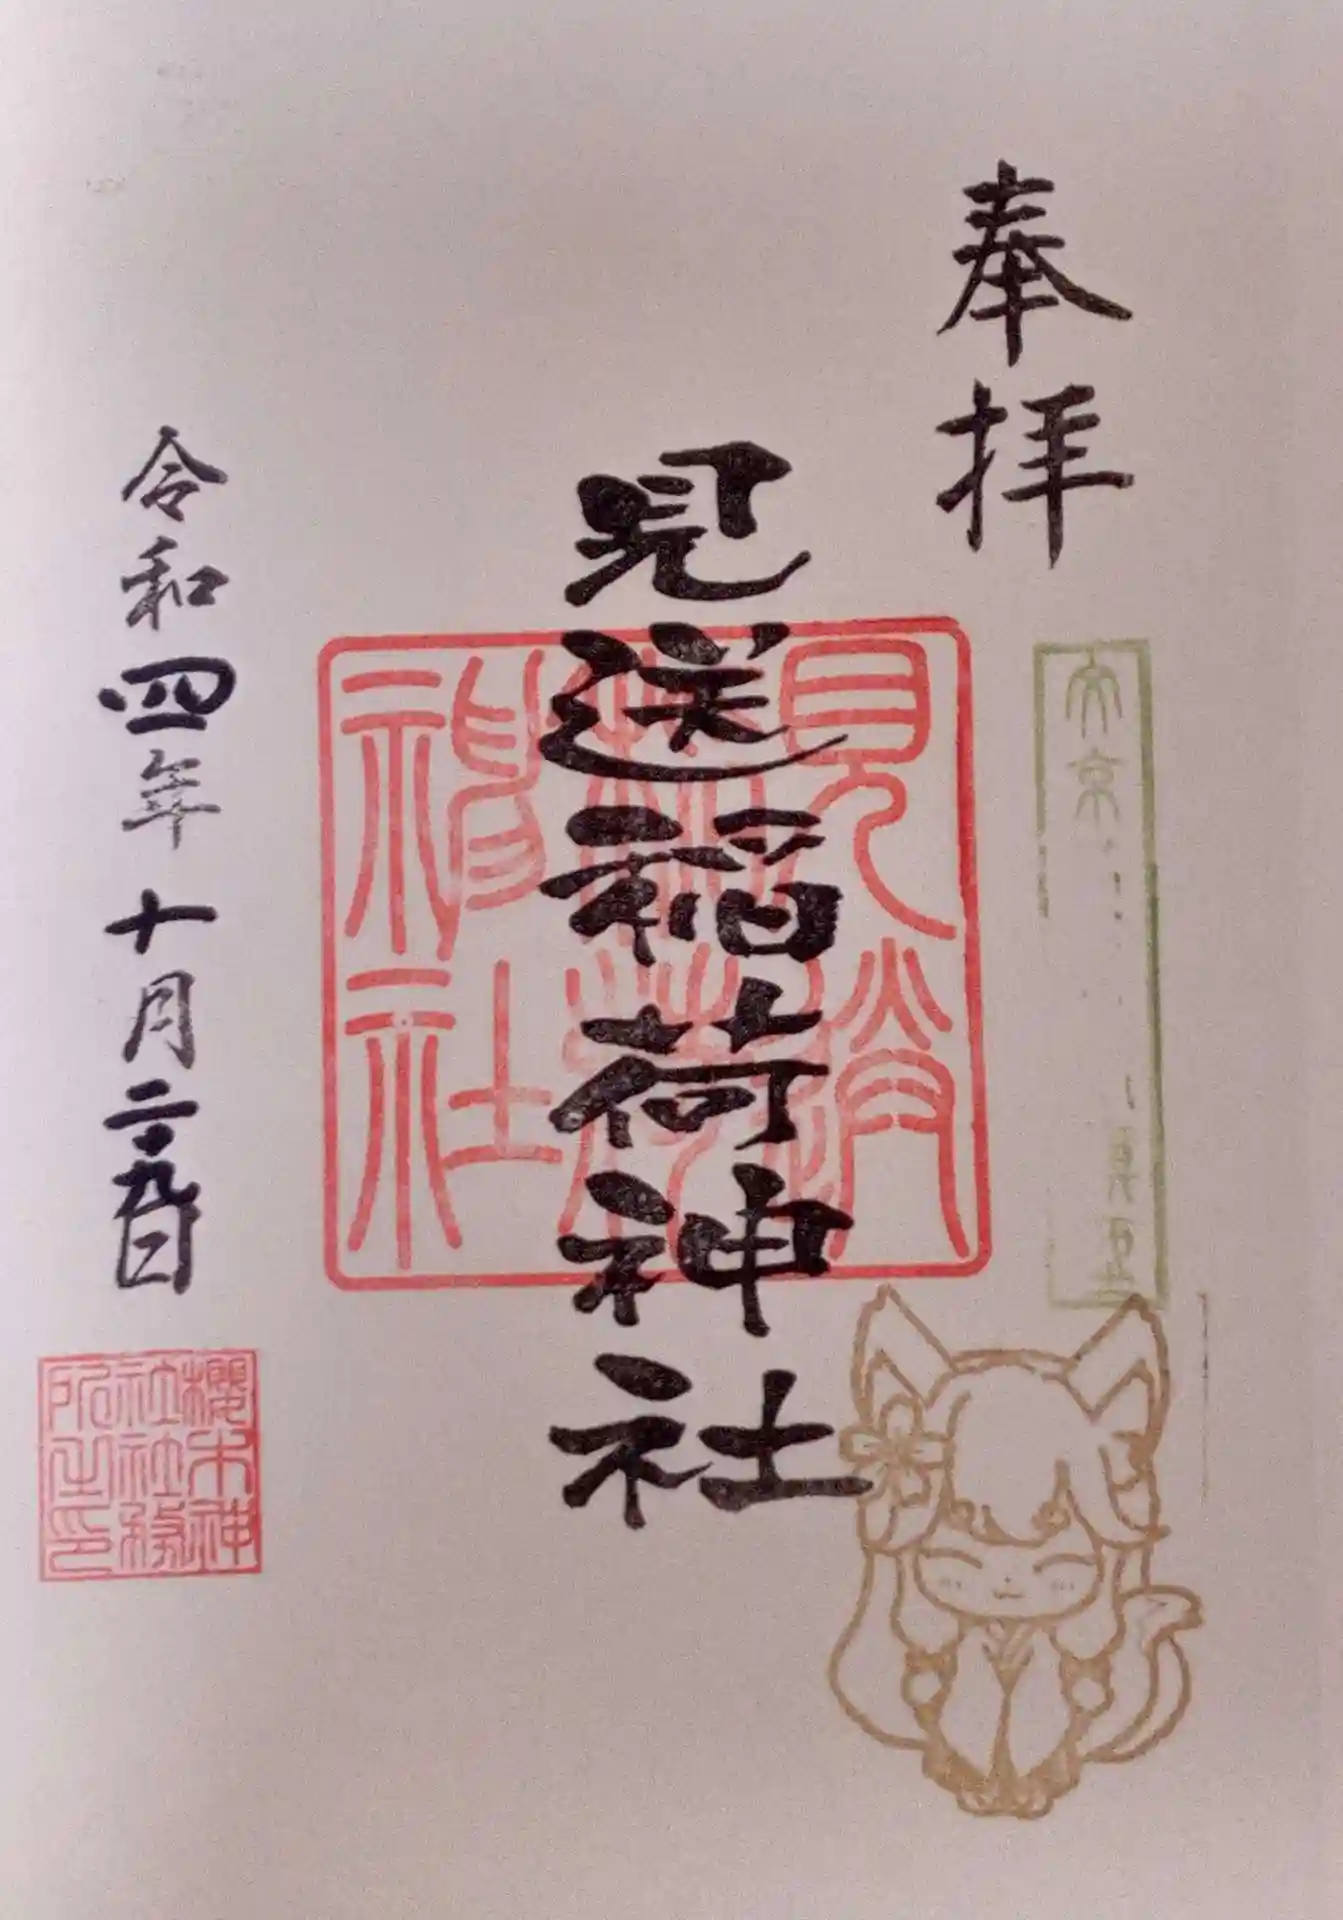 奉拝
見送稲荷神社
見送稲荷神社
令和四年十月二十九日
櫻木神
社社務
所之印